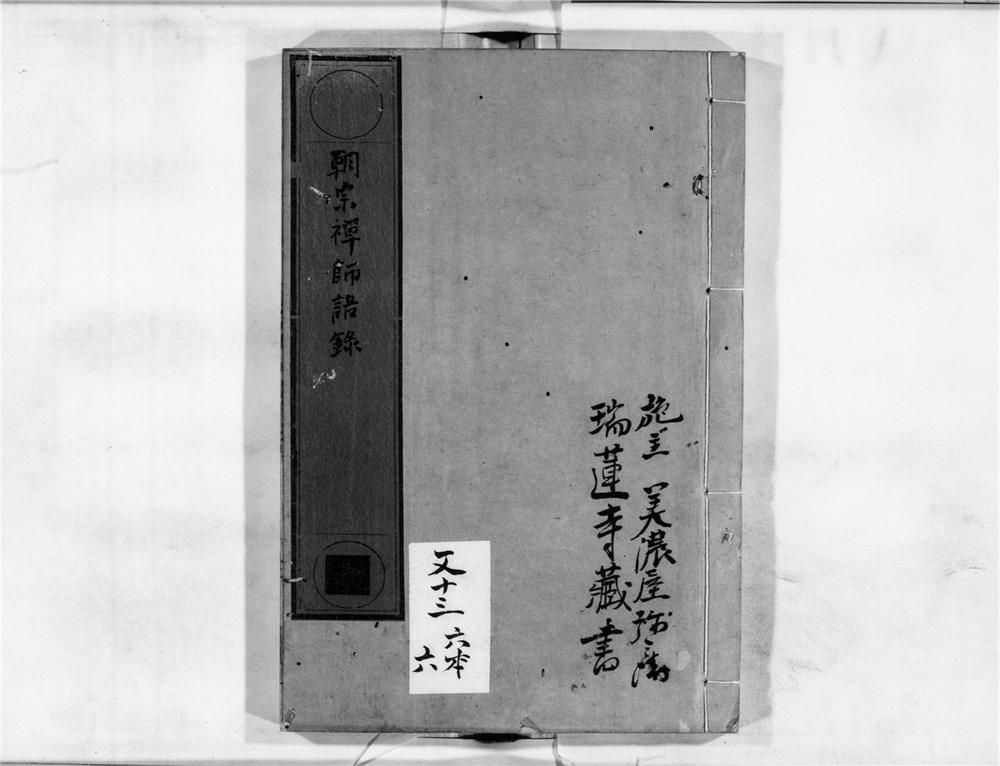 施主 美濃屋弥三濤
瑞蓮寺藏書
又十三 六本
六
朝宗禪師語錄